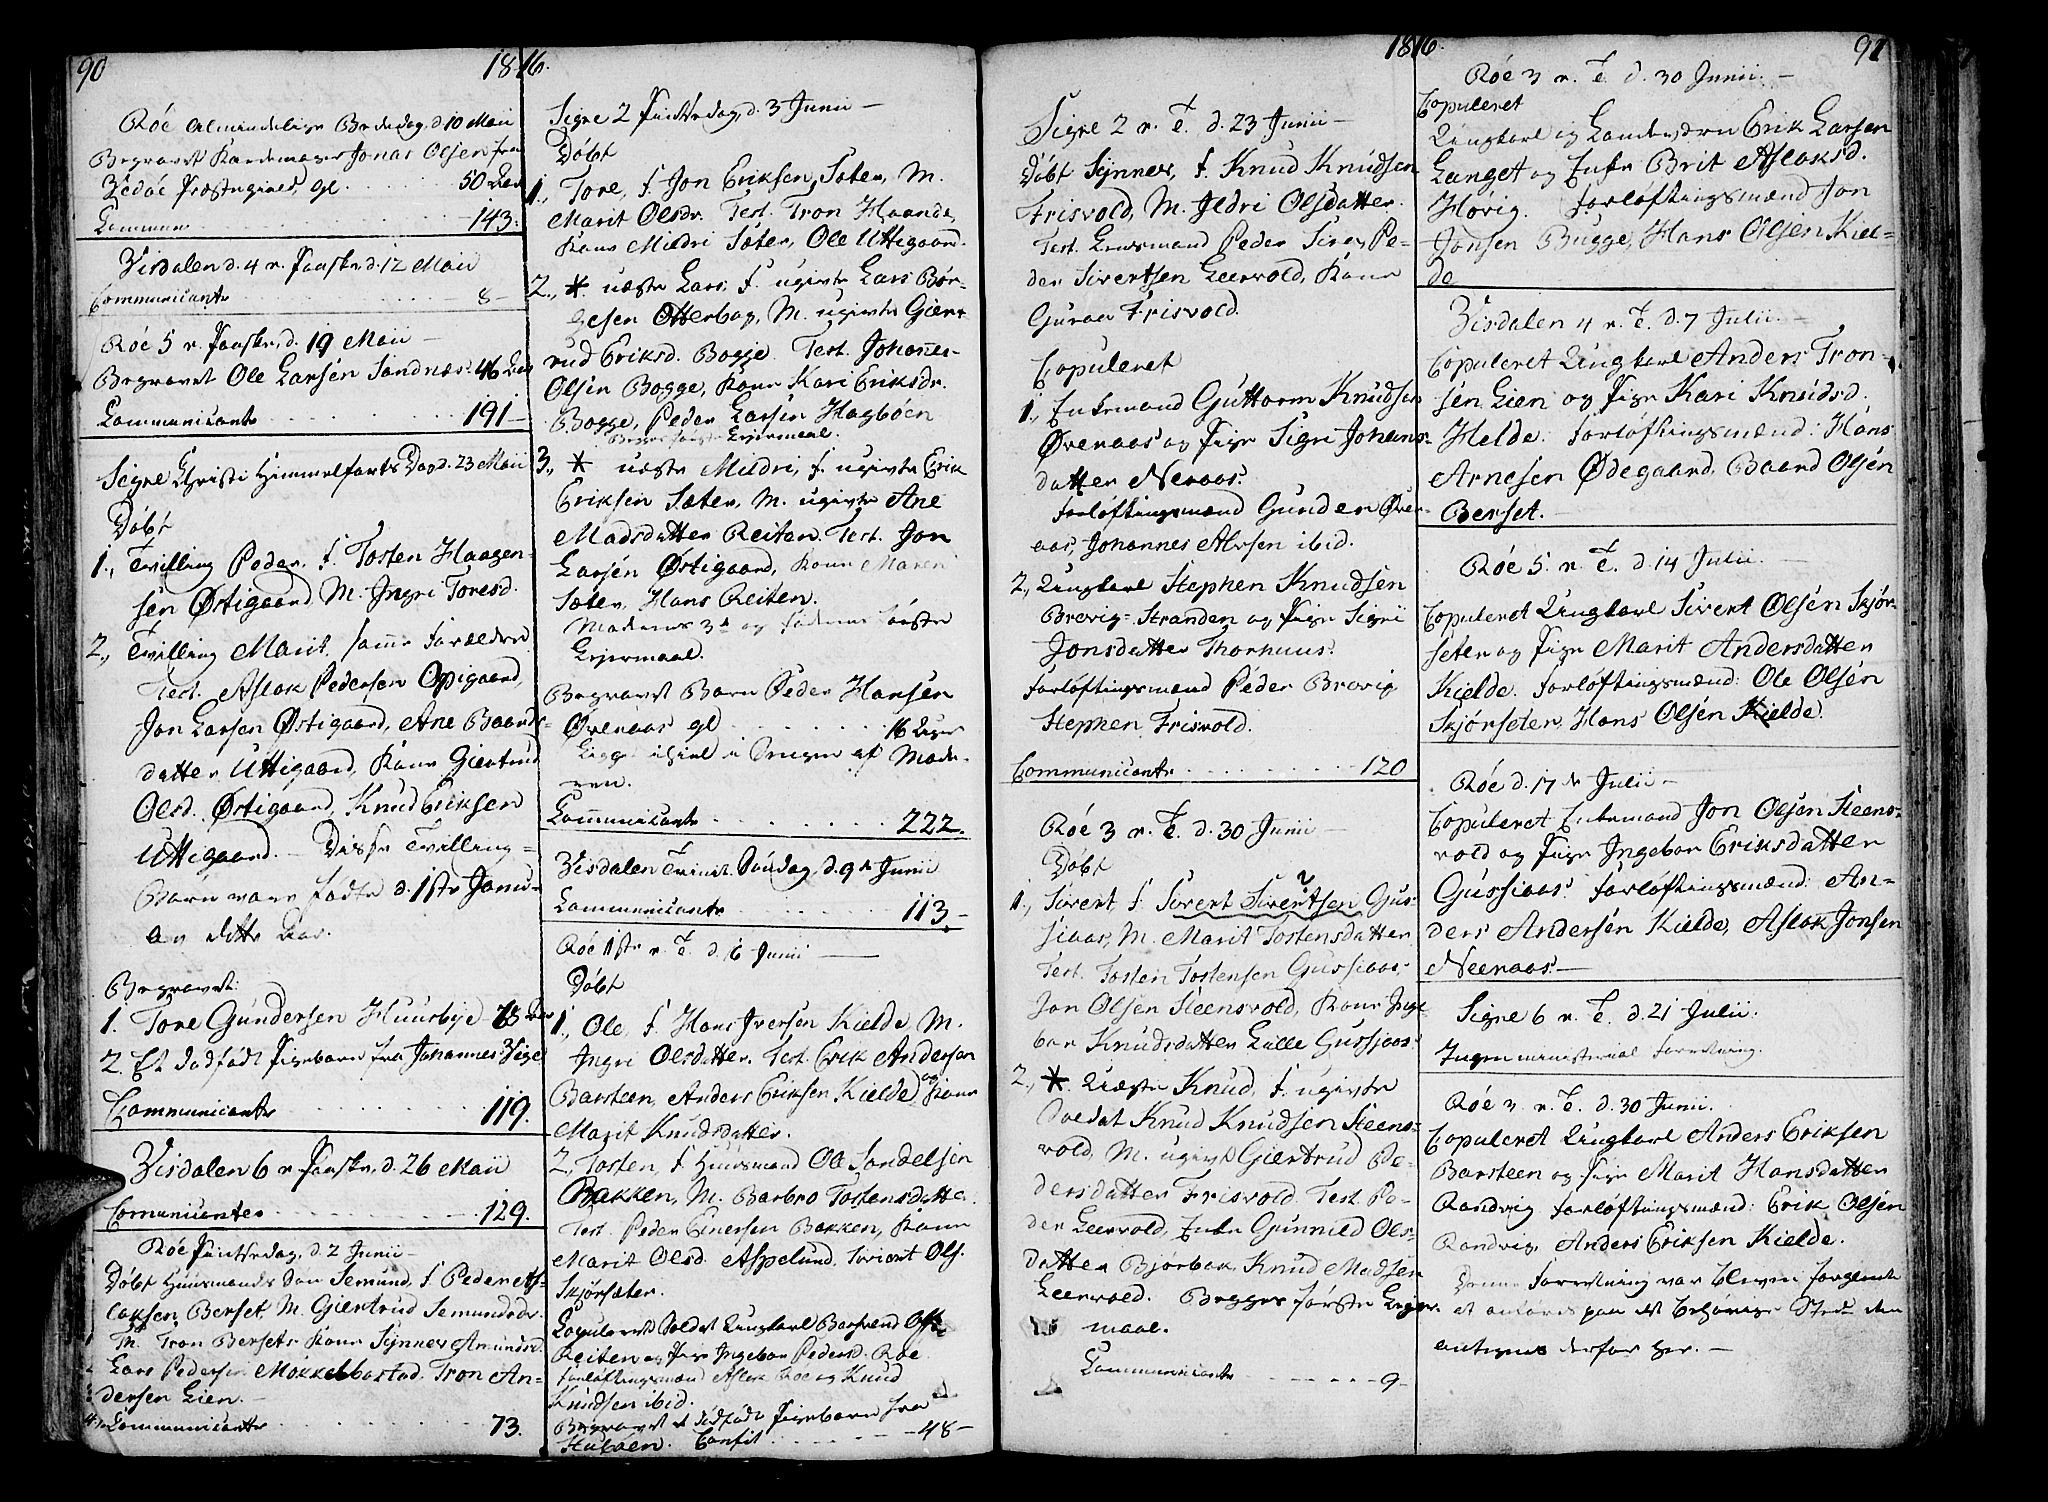 90
1816.
Röe Almindelige Bededag, d. 10 Maii
Begravet Kardemager Jonas Olsen fra
Vedöe Præstegield, gl. 50 Aar
Commun. 143.
Visdalen d. 4 p. Paaske, d. 12 Maii
Communicante 8 -
Röe 5 p. Paaske, d. 19 Maii -
Begravet Ole Larsen Sandnæs 46 Aar
Communicante 191 -
Signe Christi Himmelfarts Dag d. 23 Maii
Döbt
1., Tvilling Peder, F. Tosten Haagen-
sen Östigaard, M. Ingri Toresd.
2., Tvilling Marit, samme Forældre
Test. Aslak Pedersen Opigaard,
Jon Larsen Östigaard, Ane Baards-
datter Uttigaard, Kone Giertrud
Olsd. Östigaard, Knud Eriksen
Uttigaard. - Disse Tvilling-
Börn vare födte d. 1ste Janu-
ar dette Aar.
Begravet:
1. Tore Gundersen Huusbye 73 Aar
2. Et dödfödt Pigebarn fra Johannes
Communicante 119.
Visdalen 6 p. Paaske, d. 26 Maii
Comunicantes 129.
Röe Pintsedag, d. 2 Junii -
Döbt Huusmands Sön Semund, F. Peder As-
laksen Berset, M. Giertrud Semundsdr.
T. Tron Berset, Kone Synnev Amundsd.
Lars Pedersen Mokkelbostad, Tron An-
dersen Lien. -
Communicante 73.
Signe 2 Pintsedag, d. 3 Junii -
Döbt
1., Tore, F. Jon Eriksen Sæter, M.
Marit Olsdr. Test. Tron Haande,
Kone Mildri Sæter, Ole Uttigaard.
2., * uægte Lars, F. ugivte Lars Bör-
gesen Otterbag, M. ugivte Giert-
rud Eriksd. Bogge. Test. Johannes
Olsen Bogge, Kone Kari Eriksdr.
Bogge, Peder Larsen Hagböen
Begges förste Leiermaal.
3., * uægte Mildri, F. ugivte Erik
Eriksen Sæter, M. ugivte Ane
Madsdatter Reiten. Test. Jon
Larsen Östigaard, Kone Maren
Sæter, Hans Reiten.
Moderens 3d og Faderens förste
Leiermaal.
Begravet Barn Peder Hansen
Överaas gl. 16 Uger
Ligget ihiel i Sengen af Mode-
ren.
Communicante 222.
Visdalen Trinit. Söndag, d. 9de Junii
Communicante 113. -
Röe 1ste p. T. d. 16 Junii -
Döbt
1., Ole, F. Hans Iversen Kielde, M.
Ingri Olsdatter. Test. Erik Andersen
Barsteen, Anders Eriksen Kielde og Kone
Marit Knudsdatter.
2., Tosten, F. Huusmand Ole Sandelsen
Bakken, M. Barbro Tostensdatter
Test. Peder Einersen Bakken, Kone
Marit Olsd. Aspelund, Sivert Ols.
Skjörsæter.
Copuleret Soldat Ungkarl Ols.
Reiten og Pige Ingebor Pedersd. Röe
Forlöftningsmænd Aslak Röe og Knud
Knudsen ibid.
Begravet et dödfödt Pigebarn fra
Huböen. Confit. 48 -
1816.
91
Signe 2 p. T. d. 23 Junii -
Döbt Synnev, F. Knud Knudsen
Frisvold, M. Ildri Olsdatter.
Test. Lensmand Peder Sire, Pe-
der Sivertsen Leervold, Kone
Guraa Frisvold.
Copuleret
1., Enkemand Guttorm Knudsen
Överaas og Pige Sigri Johans-
datter Neraas.
Forlöftingsmænd Gunder Över-
aas, Johannes Alvsen ibid.
2., Ungkarl Stephen Knudsen
Brevig-Stranden og Pige Sigri
Jonsdatter Thorhuus.
Forlöftingsmænd Peder Brevig
Stephen Frisvold.
Communicante 120
Röe 3 p. T. d. 30 Junii -
Döbt
1., Sivert, F. Sivert Sivertsen Gus-
siaas, M. Marit Tostensdatter
Test. Tosten Tostensen Gussiaas,
Jon Olsen Steensvold, Kone Inge-
bor Knudsdatter Lille Gussiaas.
2., * Uægte Knud, F. ugivte
Soldat Knud Knudsen Steens-
vold, M. ugivt Giertrud Pe-
dersdatter Frisvold. Test. Pe-
der Leervold, Enke Gunnild Ols-
datter Bjorbak, Knud Madsen
Leervold. Begges förste Leier-
maal.
Communicante 9 -
Röe 3 p. T. d. 30 Junii. -
Copuleret
Ungkarl og Landeværn Erik Larsen
Langet og Enke Brit Aslaksd.
Hovig. Forlöftingsmænd Jon
Jonsen Bugge, Hans Olsen Kiel-
de
Visdalen 4 p. T. d. 7 Julii. -
Copuleret Ungkarl Anders Tron-
sen Lien og Pige Kari Knudsd.
Helde. Forlöftingsmænd: Hans
Arnesen Ödegaard, Baard Olsen
Berset. -
Röe 5. p. T. d. 14 Julii. -
Copuleret Ungkarl Sivert Olsen Skjör-
seter og Pige Marit Andersdatter
Kielde. Forlöftingsmænd: Ole Olsen
Skjörseter, Hans Olsen Kielde.
Röe d. 17de Julii -
Copuleret Enkemand Jon Olsen Steens-
vold og Pige Ingebor Eriksdatter
Gussiaas. Forlöftingsmænd: An-
ders Andersen Kielde, Aslak Jonsen
Neeraas. -
Signe 6 p. T. d. 21 Julii.
Ingen ministerial Forretning.
Röe 3 p. T. d. 30 Junii.
Copuleret Ungkarl Anders Eriksen
Barsteen og Pige Marit Hansdatter
Randvig Forlöftingsmænd: Erik Olsen
Randvig, Anders Eriksen Kielde.
Denne Forretning var bleven forglemt
at anföres paa det behörige Sted, den
antegnes derfor her. -